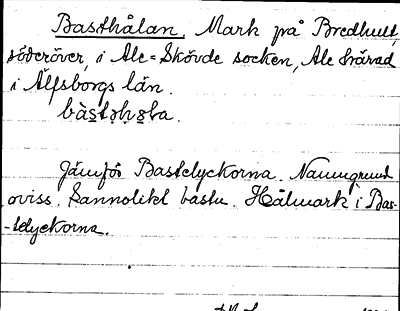 Basthålan. Mark på Bredhult,
söderöver, i Ale-Skövde socken, Ale härad
i Älfsborgs län.
Jämför Bastelyckorna. Namngrund
oviss. Sannolikt bastu. Hålmark i Bas-
-telyckorna.